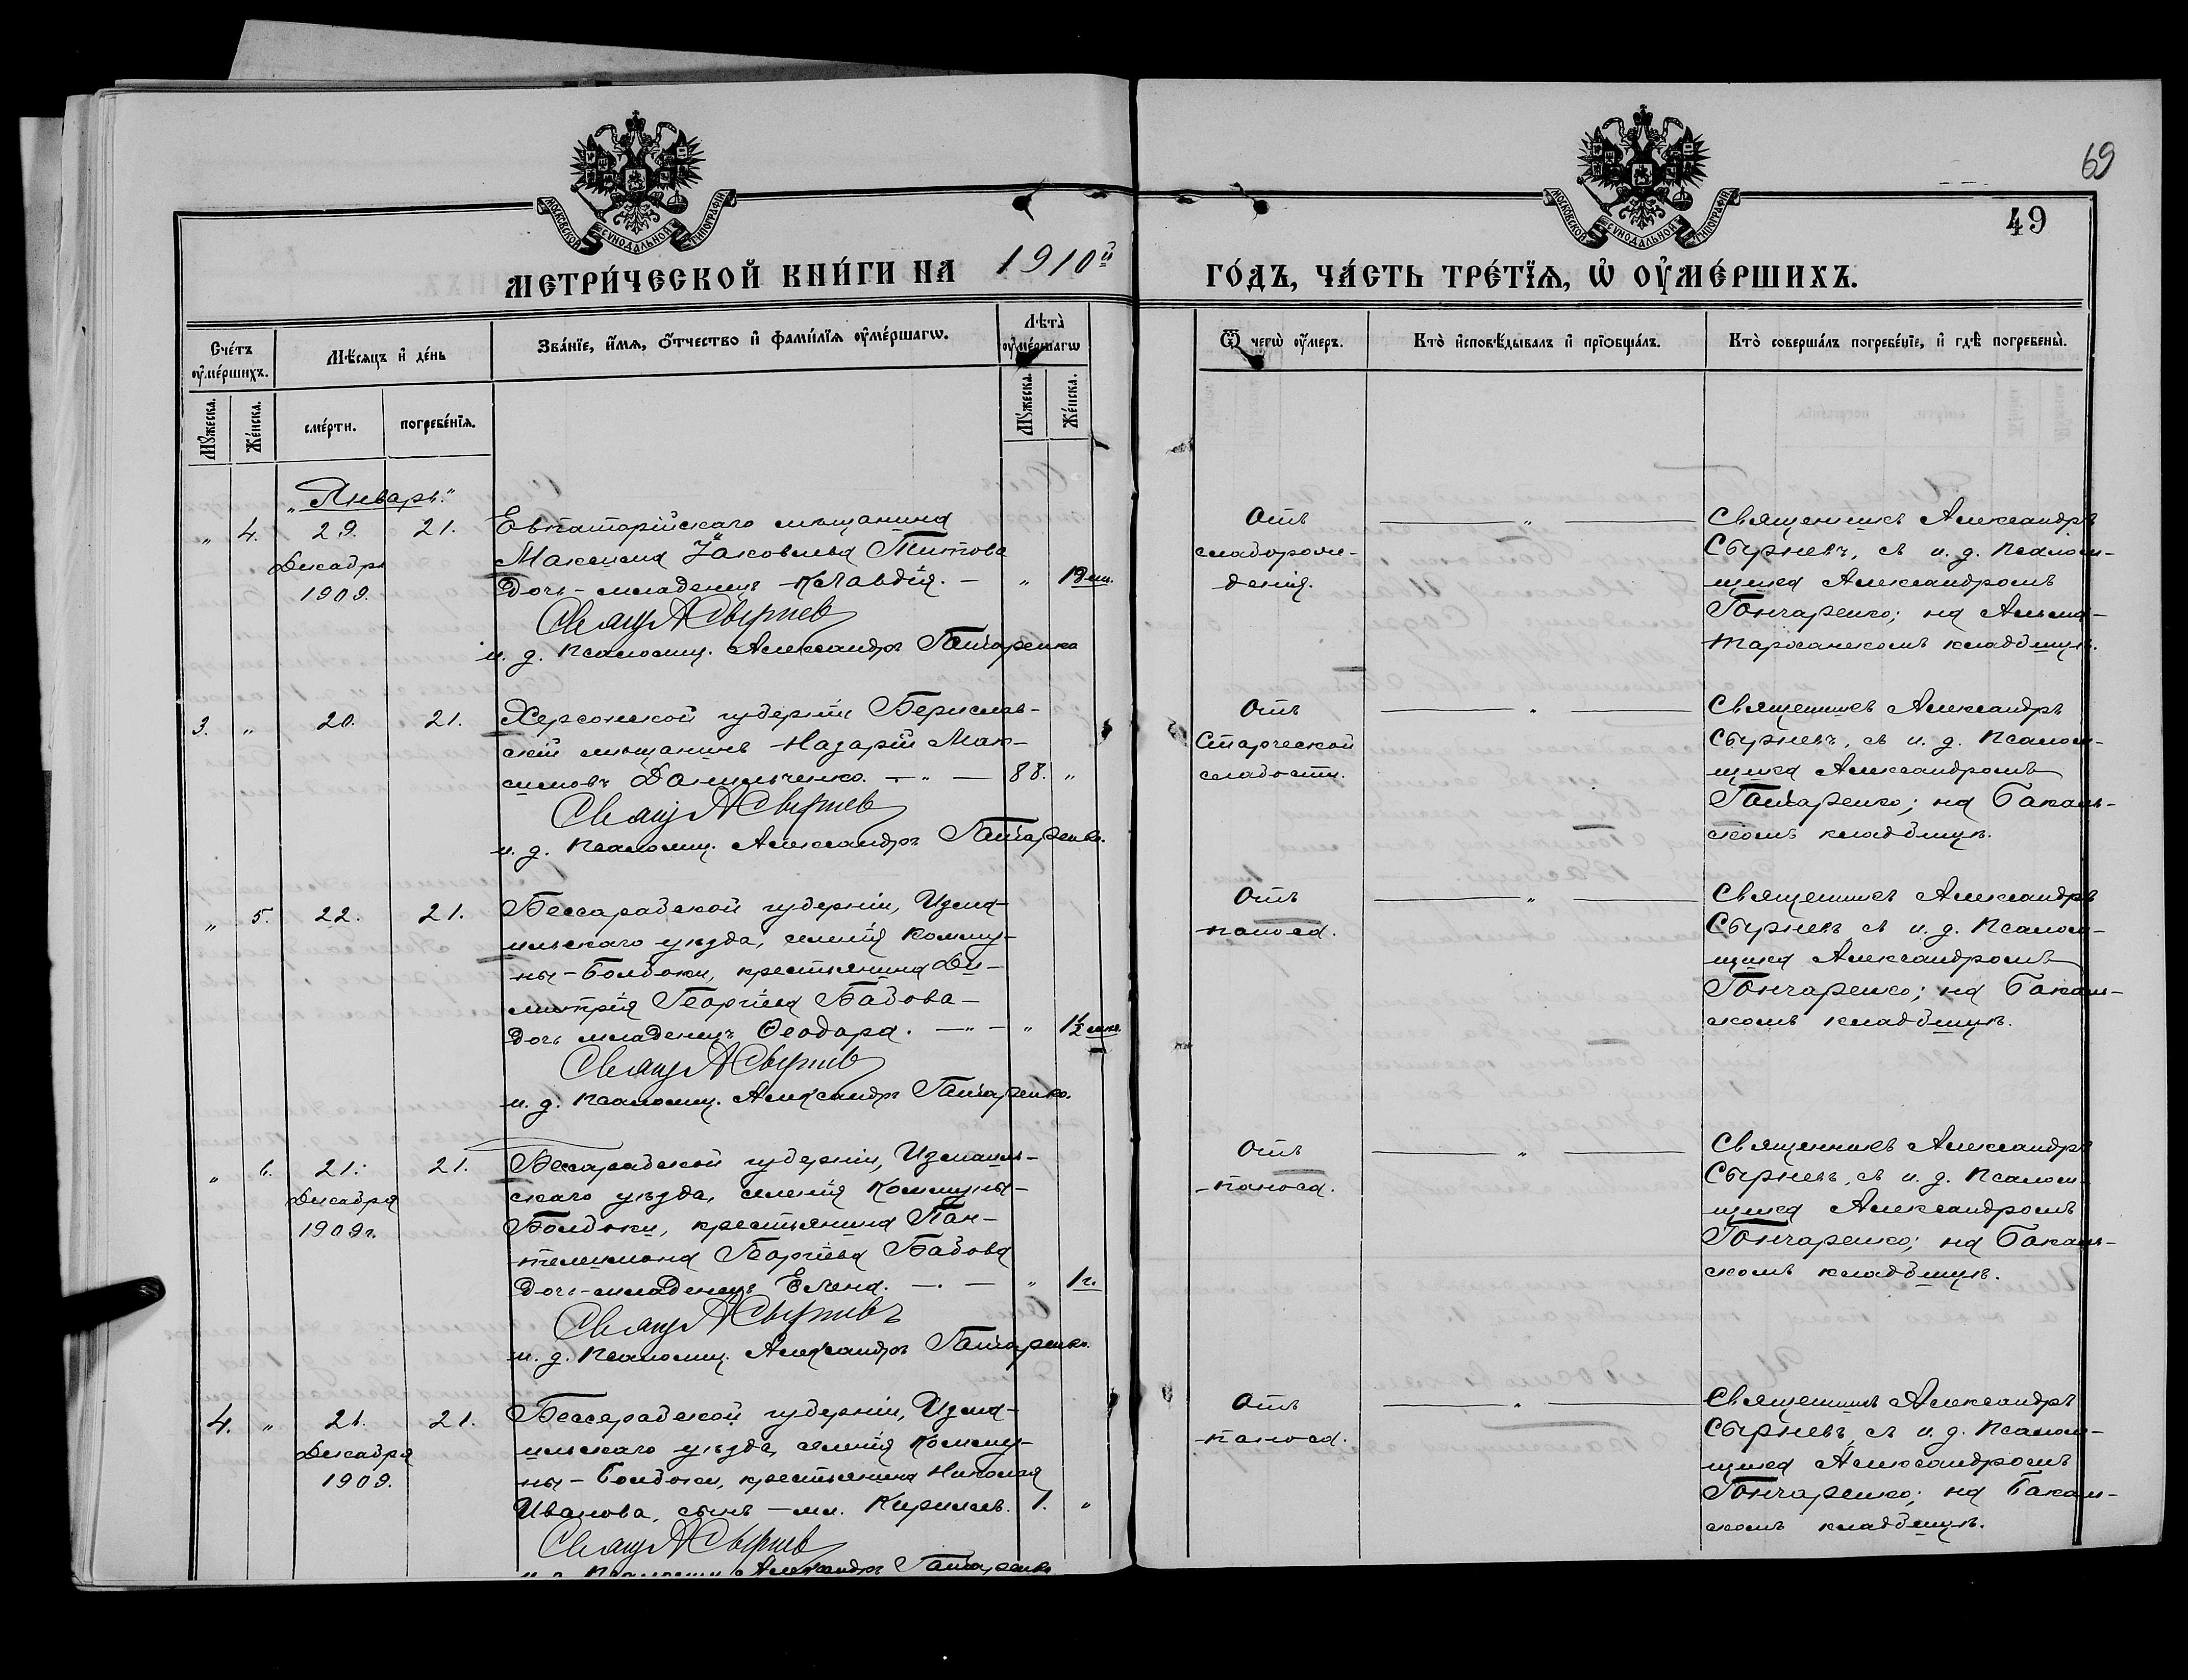 69
49
МОСКОВСКОЙ СѴНОДАЛЬНОЙ ТИПОГРАФІИ
МОСКОВСКОЙ СѴНОДАЛЬНОЙ ТИПОГРАФІИ
МЕТРИ́ЧЕСКОЙ КНИ́ГИ НА 1910й ГО́ДЪ, ЧА́СТЬ ТРЕ́ТЇѦ, Ѡ҆ ОУ҆МЕ́РШИХЪ.
Счéтъ оу҆мéршихъ.
Мѣ́сяцъ и҆ дéнь
Звáнїе, и҆́мя, ѻ҆́тчество и҆ фамѝлїя оу҆мéршагѡ.
Лѣтà оу҆мéршагѡ
Ѿ чегѡ̀ оу҆́меръ.
Ктò и҆сповѣ́дывалъ и҆ прїѡбщáлъ.
Ктò совершáлъ погребéнїе, и҆ гдѣ̀ погребены̀.
Мꙋ́жеска.
Жéнска.
смéрти.
погребéнїя.
Мꙋ́жеска.
Жéнска.
„Январь."
„ 4. 29. 21.
Декабря
1909.
Евпаторійскаго мѣщанина
Максима Іаковлева Титова
дочь-младенецъ Клавдія. — „
Свящ А Сырнев
и. д. псаломщ. Александръ Гончаренко
Отъ
слаборож-
денія.
— „ —
Священникъ Александръ
Сырневъ, съ и. д. псалом-
щика Александромъ
Гончаренко; на Альма-
тарханскомъ кладбищѣ.
3. „ 20. 21.
Херсонской губерніи Берислав-
скій мѣщанинъ Назарій Мак-
симовъ Данильченко. — „ — 88. „
Свящ А Сырнев
и. д. псаломщ. Александръ Гончаренко.
Отъ
старческой
слабости.
— „ —
Священникъ Александръ
Сырневъ, съ и. д. псалом-
щика Александромъ
Гончаренко; на Бакаль-
скомъ кладбищѣ.
„ 5. 22. 21.
Бессарабской губерніи, Изма-
ильскаго уѣзда, селенія Комму-
ны-Болбоки, крестьянина Ди-
митрія Георгіева Бабова-
дочь младенецъ Ѳеодора. — „ — „ 1½ мѣс.
Свящ А Сырнев
и. д. псаломщ. Александръ Гончаренко.
Отъ
поноса.
— „ —
Священникъ Александръ
Сырневъ съ и. д. псалом-
щика Александромъ
Гончаренко; на Бакаль-
скомъ кладбищѣ.
„ 6. 21. 21.
Декабря
1909г.
Бессарабской губерніи, Измаиль-
скаго уѣзда, селенія Коммуны-
Болбоки, крестьянина Пан-
телеимона Георгіева Бабова
дочь-младенецъ Елена. — „ — „ 1г.
Свящ А Сырневъ
и. д. псаломщ. Александръ Гончаренко.
Отъ
поноса.
— „ —
Священникъ Александръ
Сырневъ, съ и. д. псалом-
щика Александромъ
Гончаренко; на Бакаль-
скомъ кладбищѣ.
4. „ 21. 21.
Декабря
1909.
Бессарабской губерніи, Изма-
ильскаго уѣзда, селенія Комму-
ны-Болбоки, крестьянина Николая
Иванова, сынъ - мл. Кириллъ. 1. „
Свящ А Сырнев
и. д. псаломщ. Александръ Гончаренко
Отъ
поноса.
— „ —
Священникъ Александръ
Сырневъ, съ и. д. псалом-
щика Александромъ
Гончаренко; на Бакаль-
скомъ кладбищѣ.